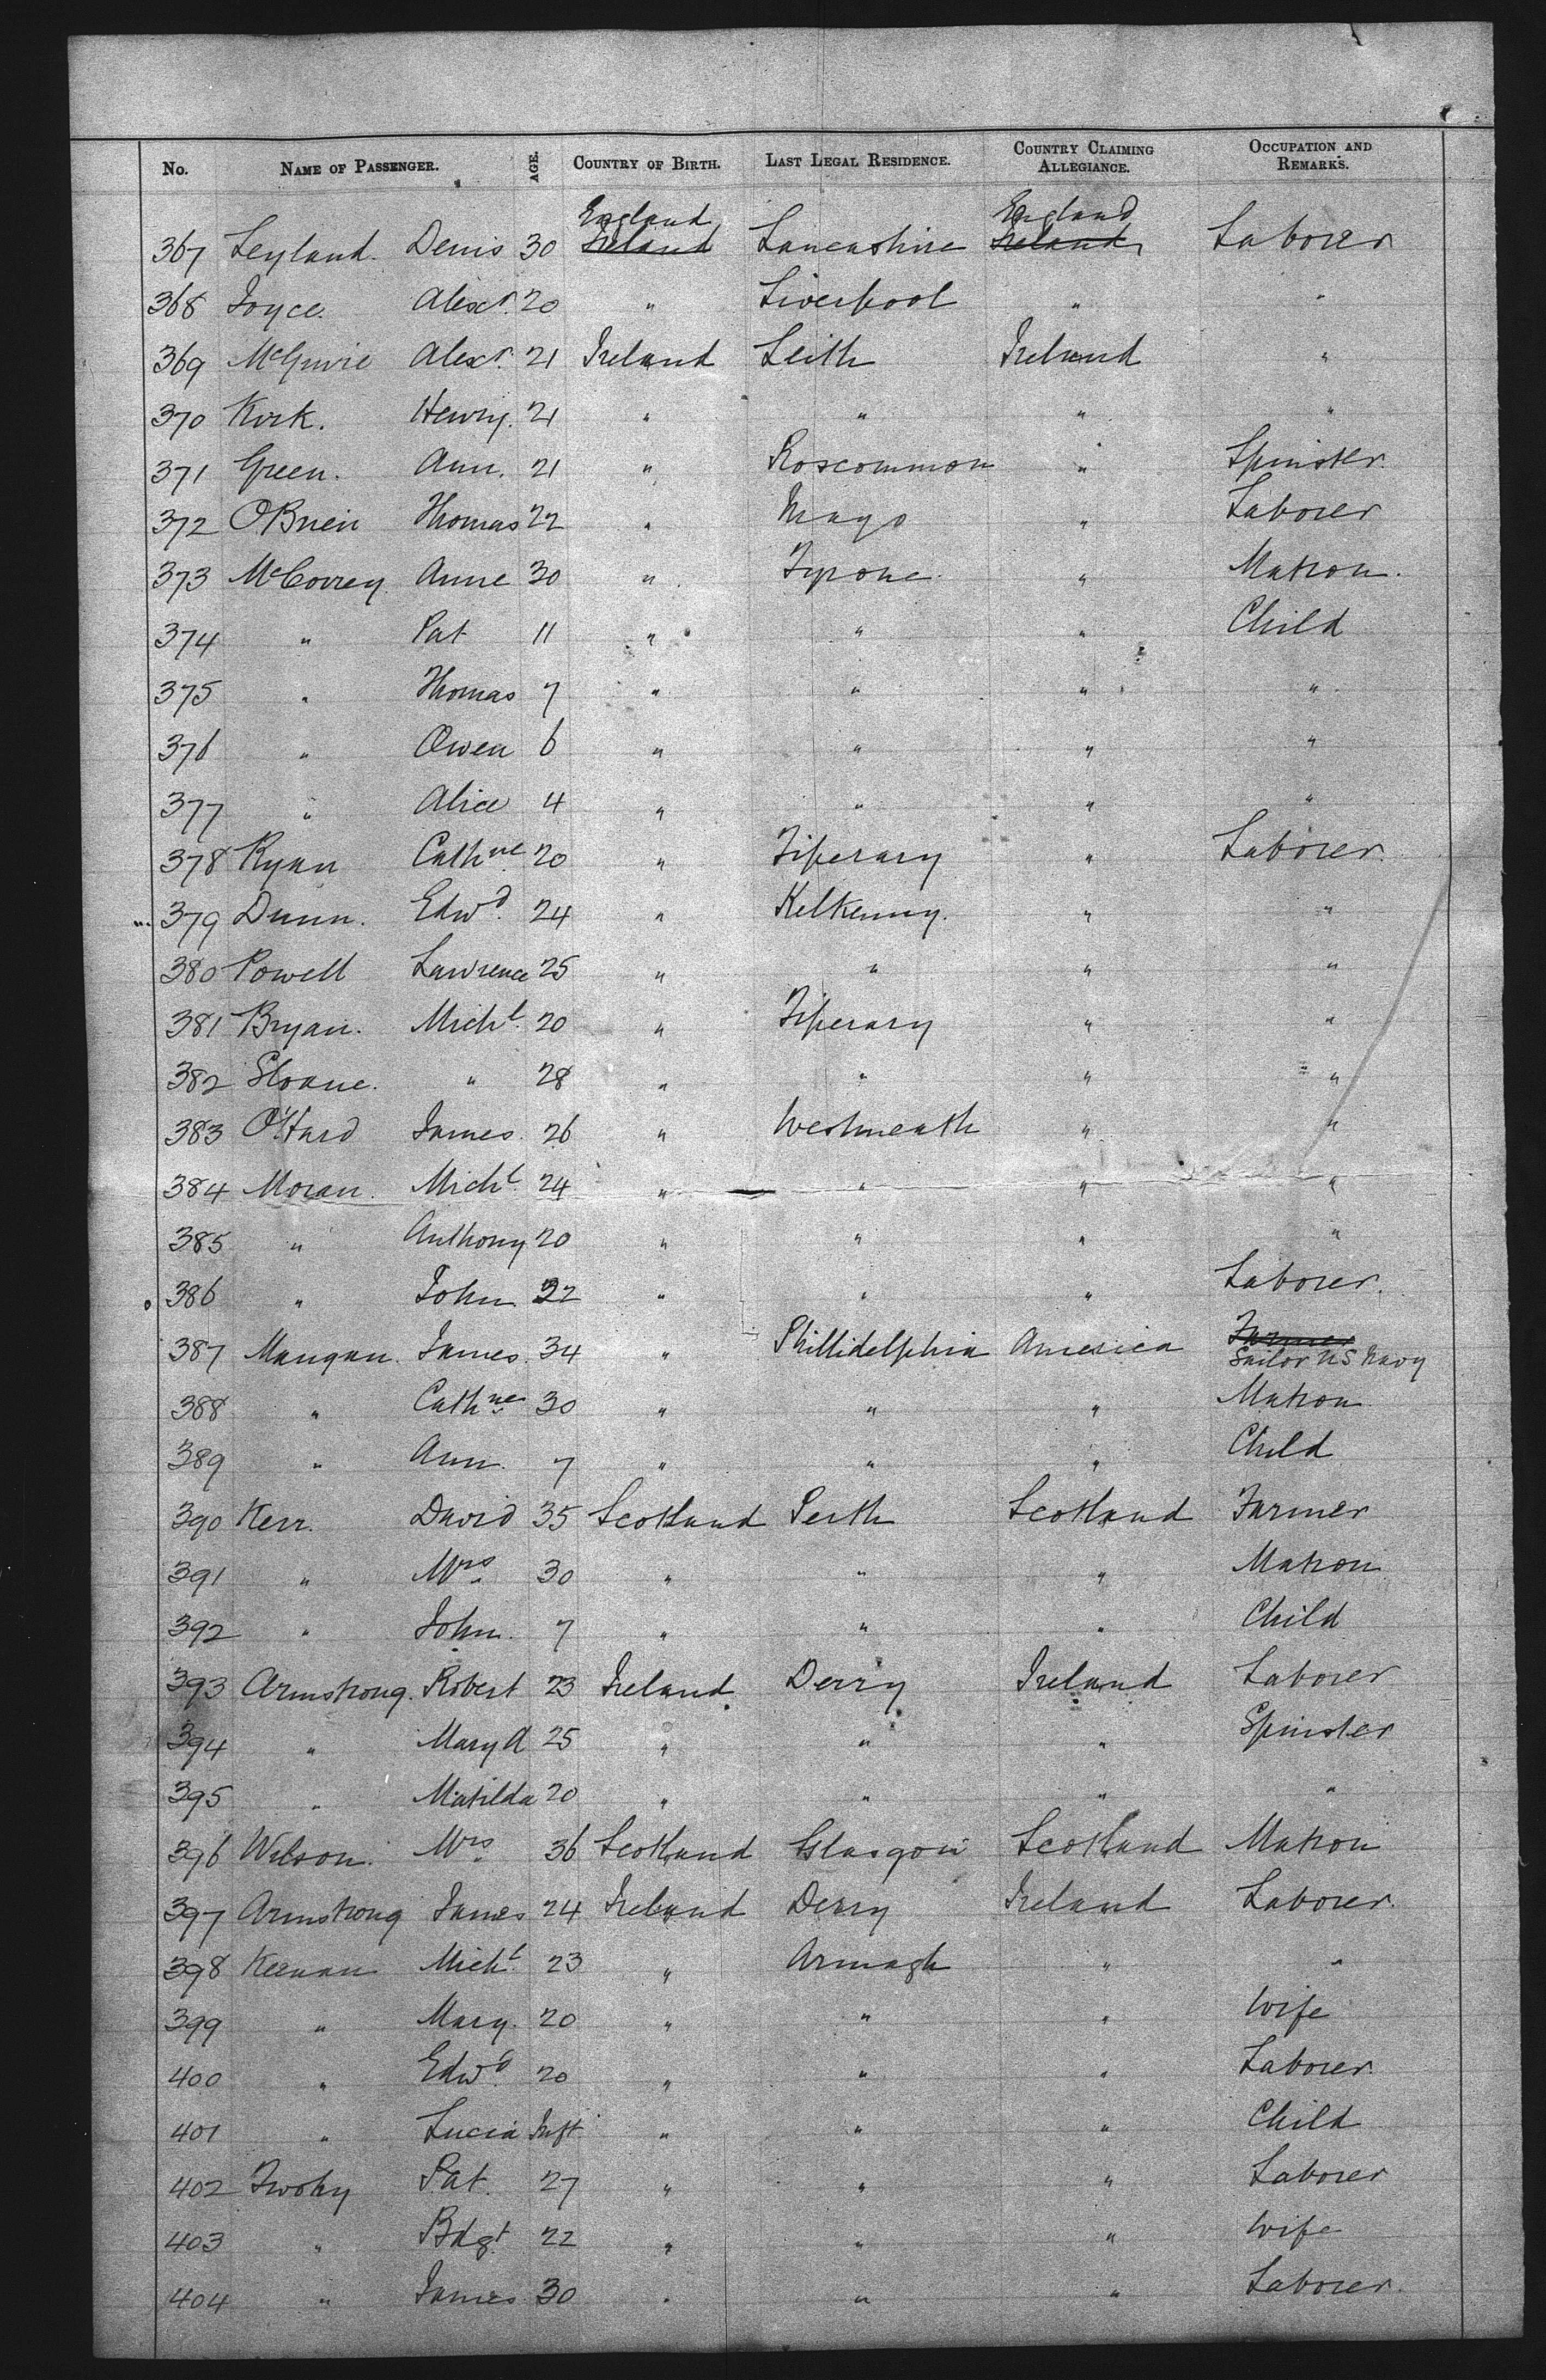 No. NAME OF PASSENGER. AGE. COUNTRY OF BIRTH. LAST LEGAL RESIDENCE. COUNTRY CLAIMING ALLEGIANCE. OCCUPATION AND REMARKS.
England England
367 Leyland. Denis 30 Ireland Lancashire Ireland Laborer
368 Joyce. Alexr. 20 " Liverpool " "
369 Alexr. 21 Ireland Leith Ireland "
370 Kirk. Henry. 21 " " " "
371 Green. Ann. 21 " Roscommon " Spinster.
372 OBrien Thomas 22 " Mayo " Laborer
373 McCorrey Anne 30 " Tyrone. " Matron.
374 " Pat 11 " " " Child
375 " Thomas 7 " " " "
376 " Owen 6 " " " "
377 " Alice 4 " " " "
378 Ryan Cathne 20 " Tiperary " Laborer.
379 Dunn. Edwd. 24 " Kilkenny. " "
380 Powell Lawrence 25 " " " "
381 Bryan. Michl. 20 " Tiperary " "
382 Sloane. " 28 " " " "
383 James. 26 " Westmeath " "
384 Moran. Michl. 24 " " " "
385 " Anthony 20 " " " "
386 " John. 22 " " " Laborer.
387 Mangan. James. 34 " Phillidelphia America Farmer
Sailor US Navy
388 " Cathne 30 " " " Matron
389 " Ann. 7 " " " Child
390 Kerr. David 35 Scotland Perth Scotland Farmer
391 " Mrs 30 " " " Matron
392 " John. 7 " " " Child
393 Armstrong. Robert 23 Ireland Derry Ireland Laborer
394 " Mary A 25 " " " Spinster
395 " Matilda 20 " " " "
396 Wilson. Mrs 36 Scotland Glasgow Scotland Matron
397 Armstrong James 24 Ireland Derry Ireland Laborer.
398 Keenan Michl. 23 " Armagh " "
399 " Mary. 20 " " " Wife
400 " Edwd. 20 " " " Laborer.
401 " Lucia Inft " " " Child
402 Twohy Pat. 27 " " " Laborer
403 " Bdgt. 22 " " " Wife
404 " James 30 " " " Laborer.